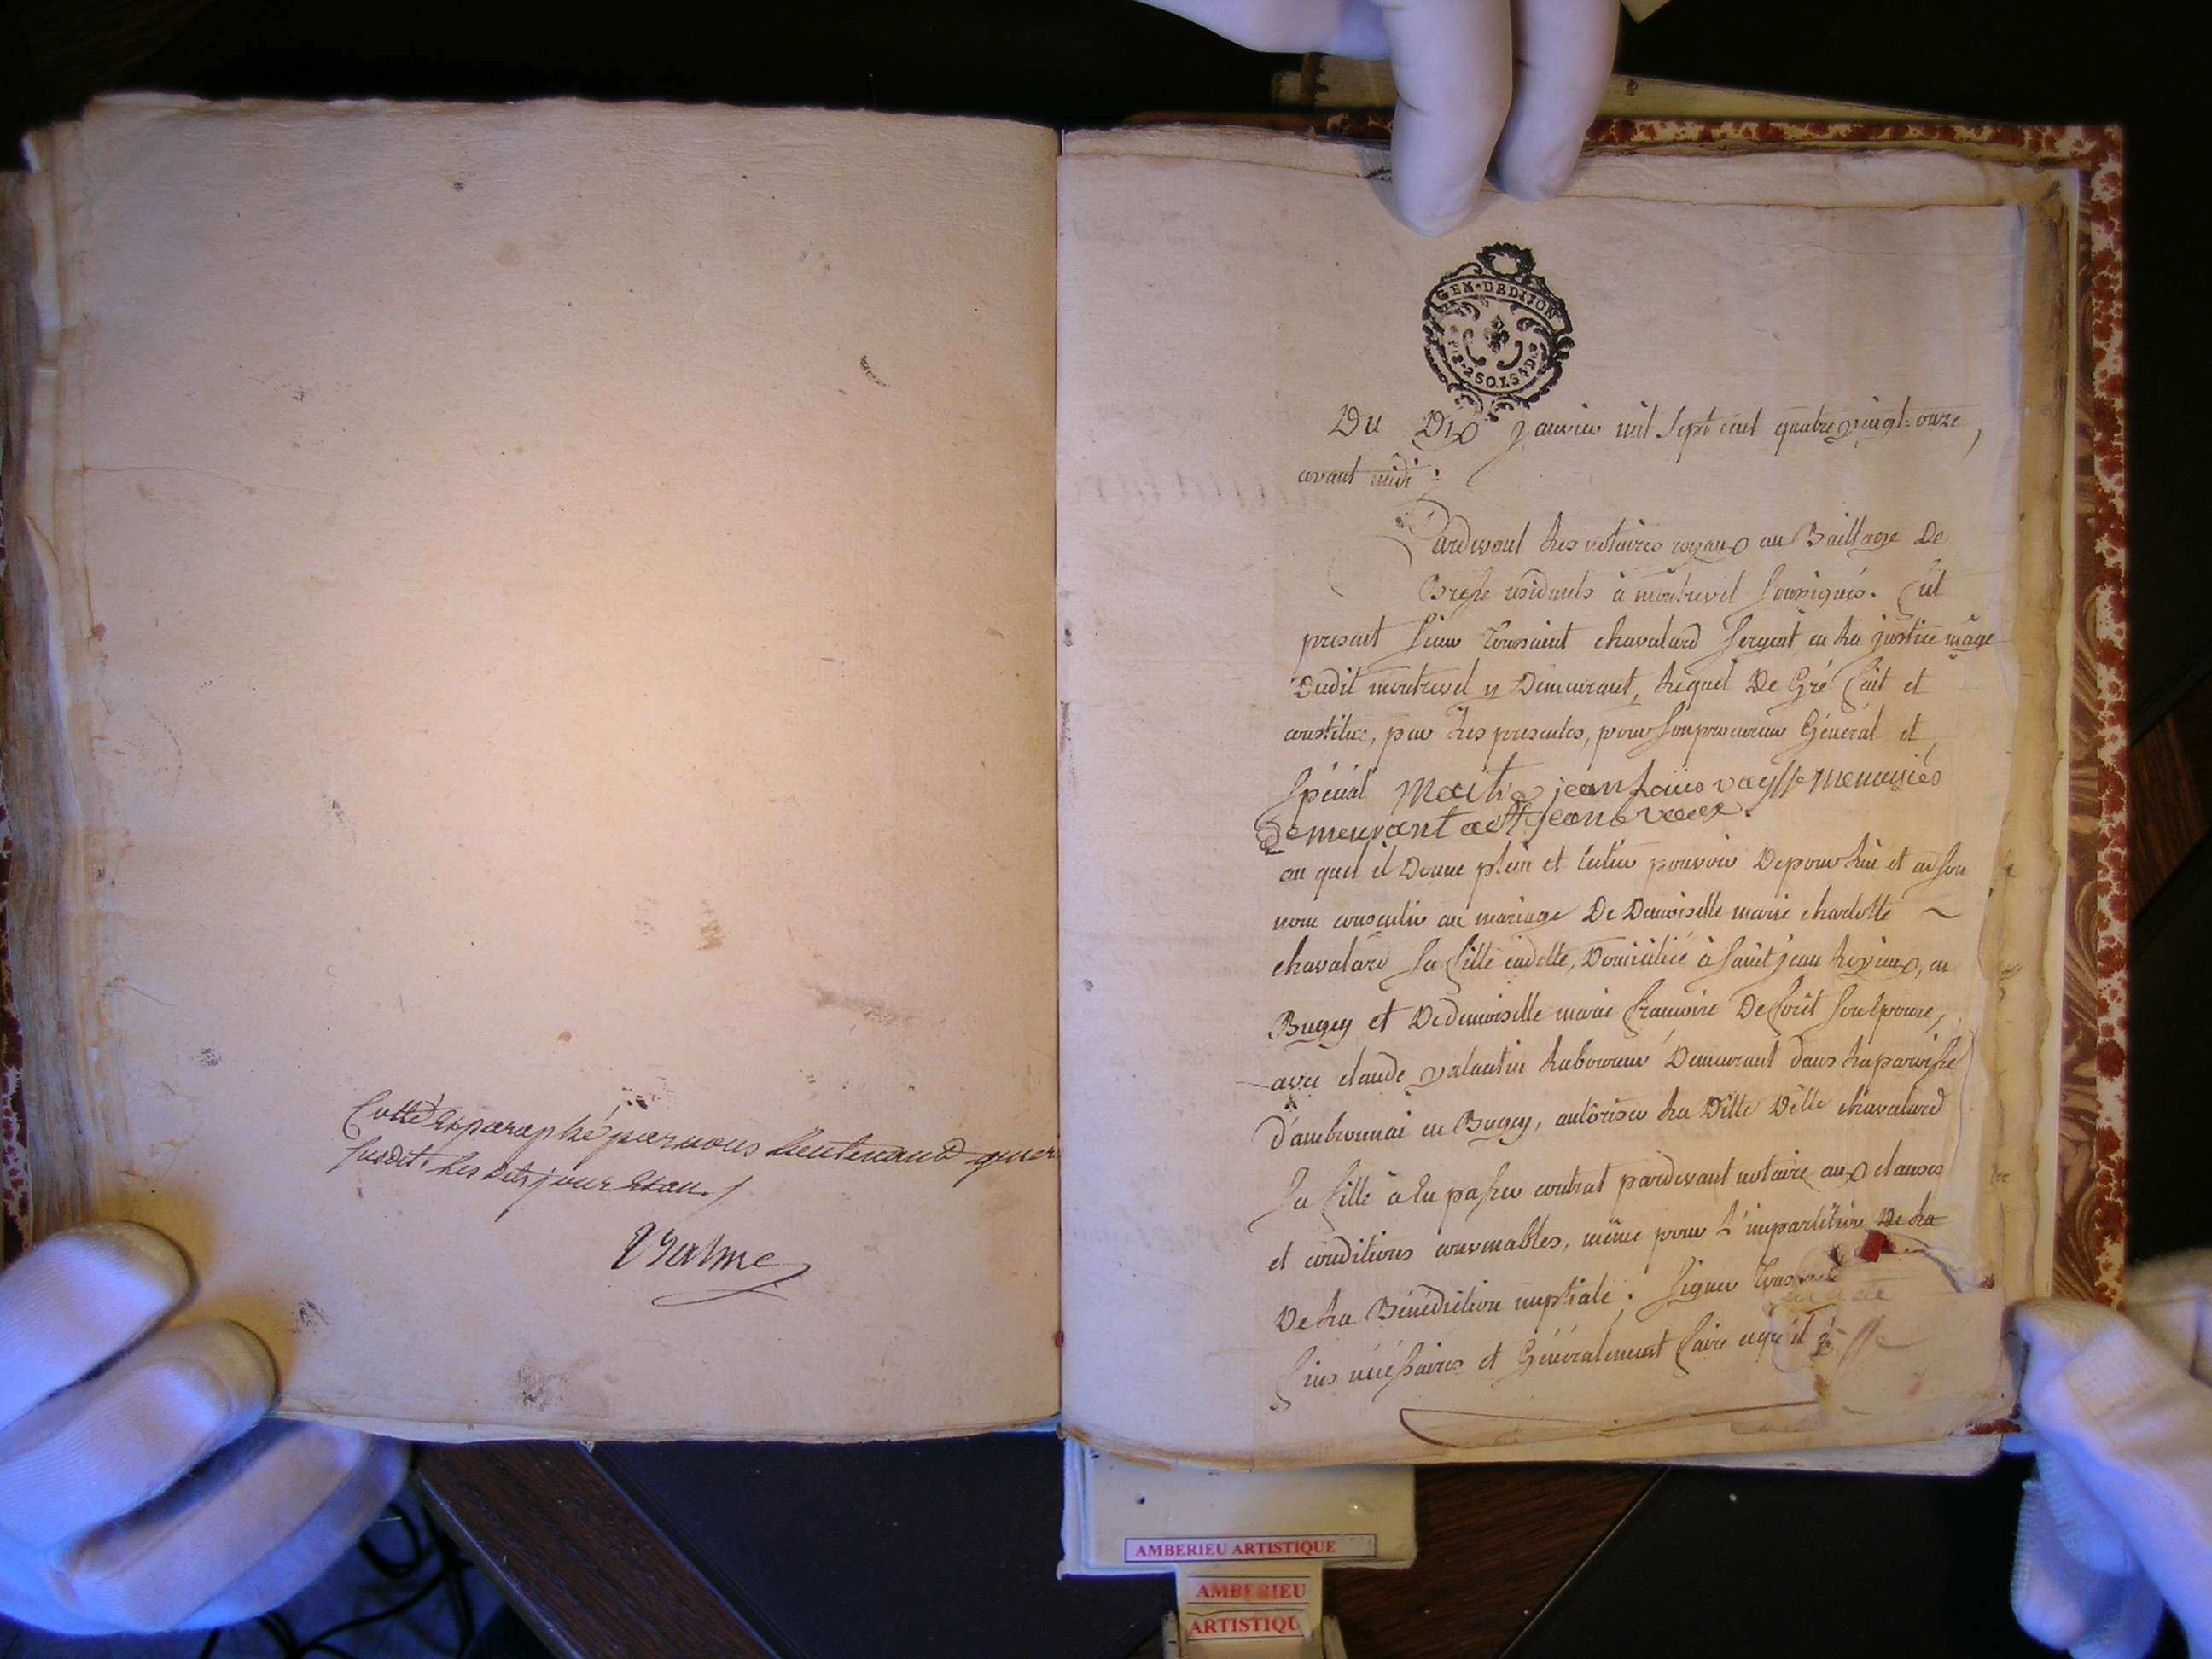 Cotté et paraphé par nous lieutenant
susdit. Les dits jour et an.
GEN. DE DIJON
2 SO. LS 4 D.
Du Dix Janvier mil Sept cent quatre vingt-onze,
avant midi :
Pardevant Les notaires royaux au Baillage De
Bresse residants à montrevel soussignés. fut
present sieur Toussaint chavalard sergent en La justice mage
Dudit montrevel y Demeurant, Lequel De Gré fait et
constitue, par Les presentes, pour son procureur Général et
spécial jean Louis vaysse Menuisiés
Demeurant a st jean
au quel il Donne plein et entier pouvoir De pour Lui et en son
nom consentir au mariage De Demoiselle marie charlotte ~
chavalard sa fille cadette, Domiciliée à saint jean Levieux, en
Bugey et De demoiselle marie francoise De forêt son Epouse,
avec claude valantin Laboureur Demeurant dans La paroisse
d'ambronai en Bugey, autôriser La Ditte Dlle chavalard
sa fille à En passer contrat pardevant notaire aux clauses
et conditions convenables, même pour L'impartition De La
De La Bénédiction nuptiale ; signer tous
fins nécessaires et Généralement faire ce qu'il
AMBERIEU ARTISTIQUE
AMBERIEU
ARTISTIQU